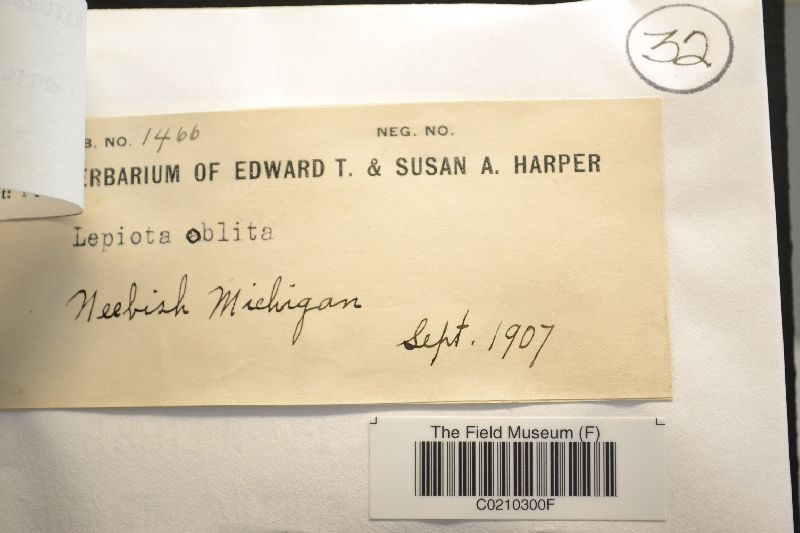 32
B. NO. 1466 NEG. NO.
ERBARIUM OF EDWARD T. & SUSAN A. HARPER
Lepiota oblita
Neebish Michigan
Sept. 1907
The Field Museum (F)
C0210300F